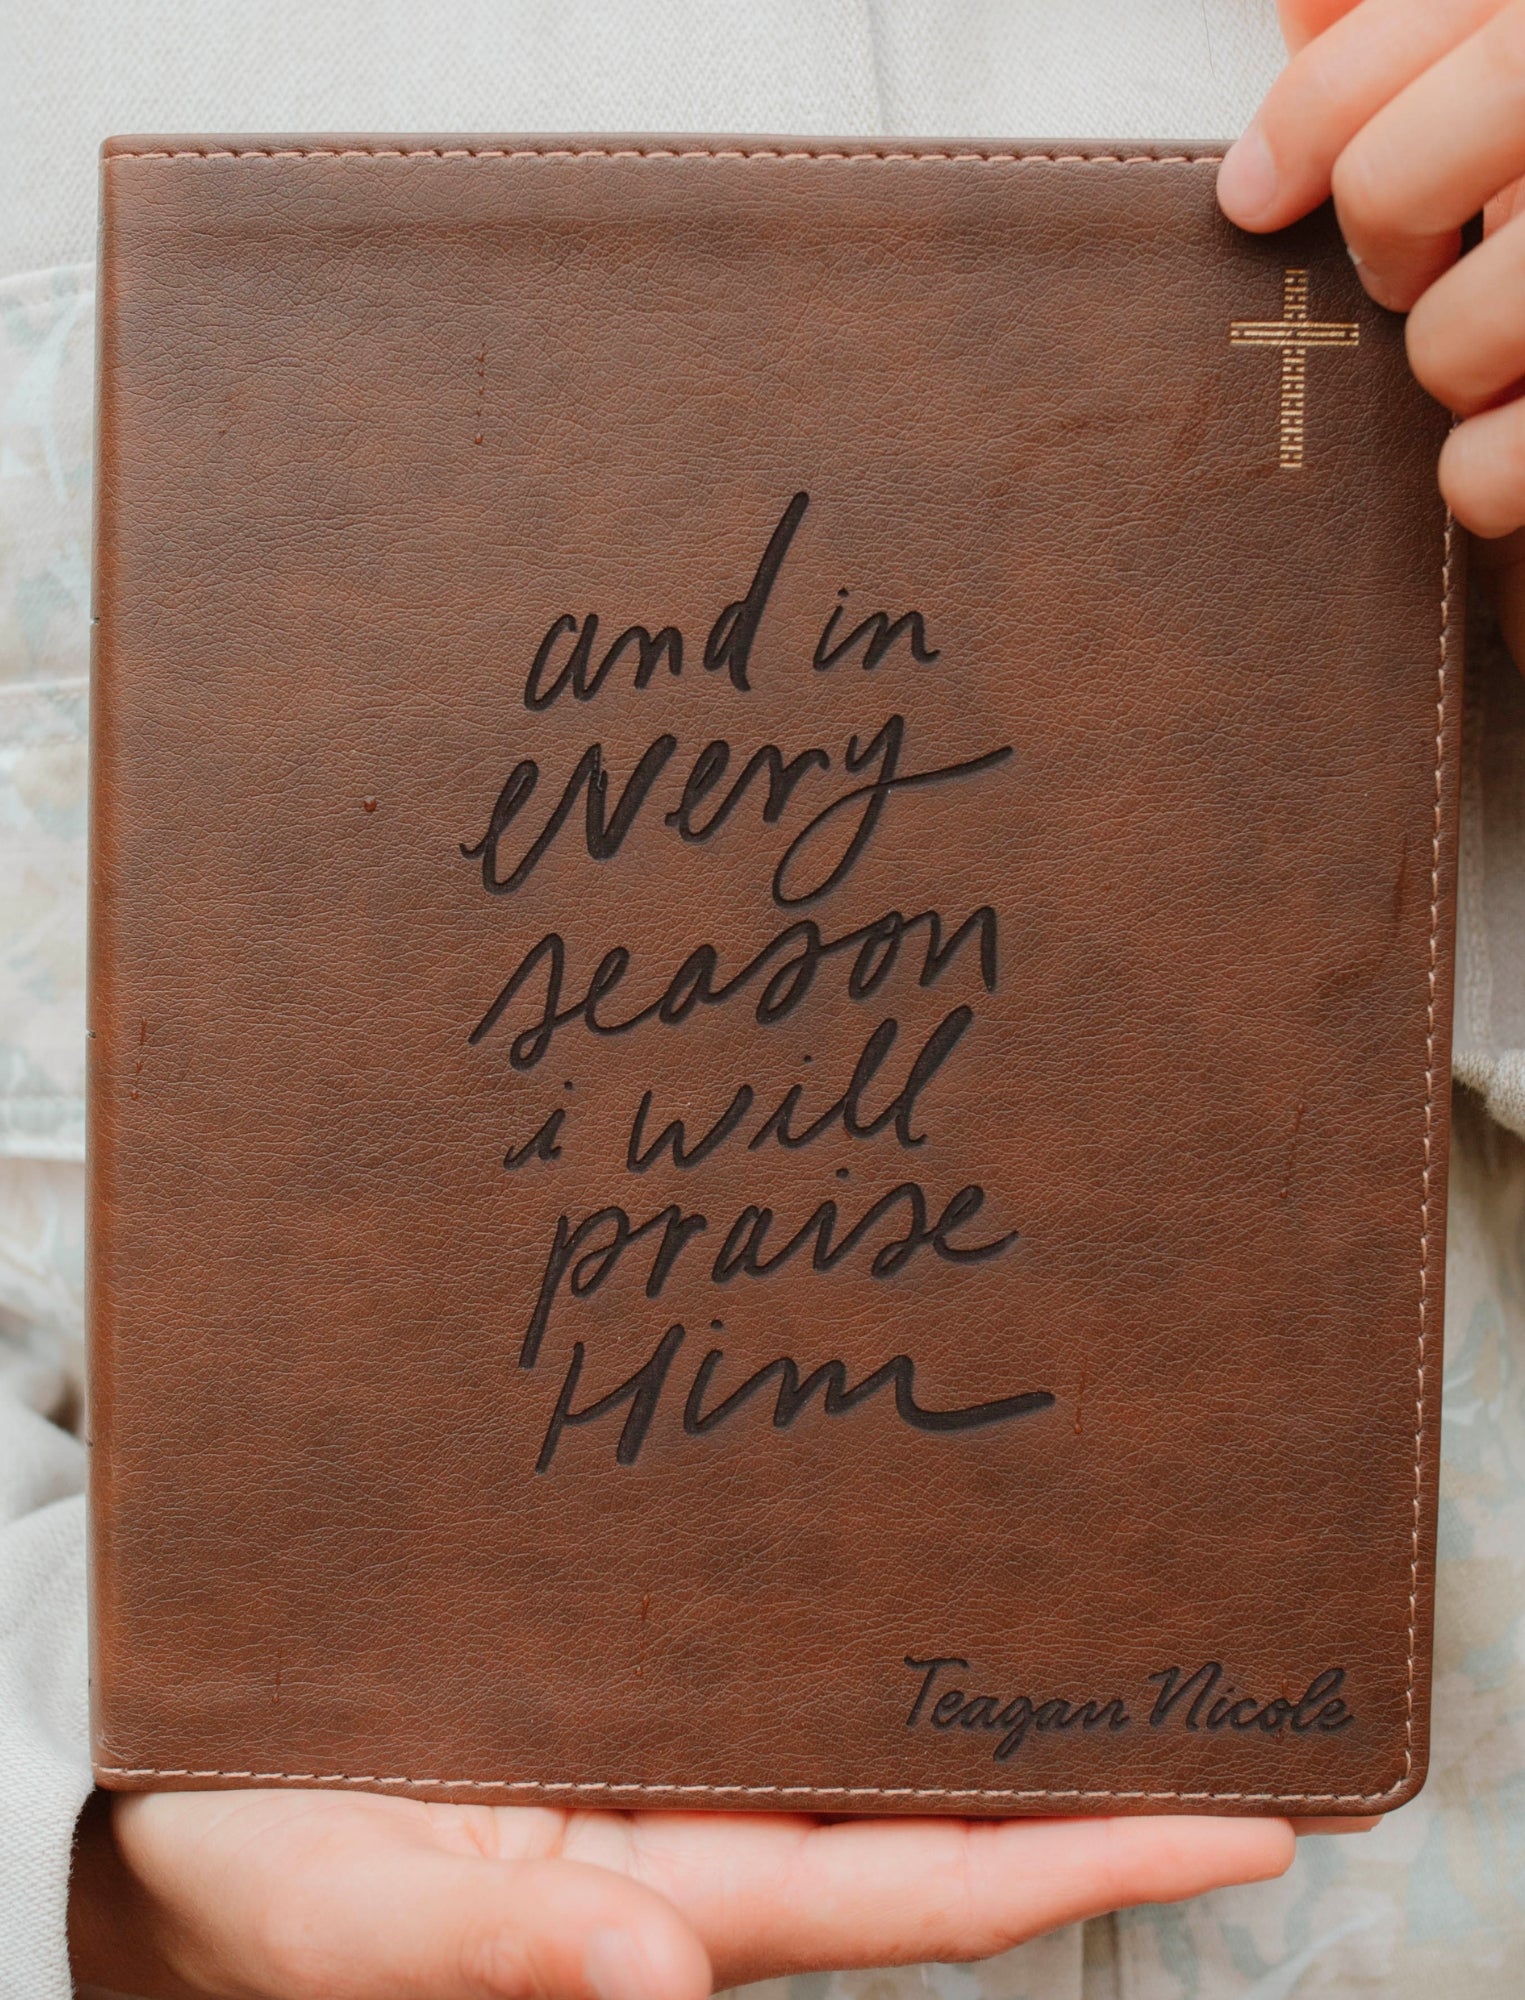 and in
every
season
i will
praise
Him
Teagan Nicole